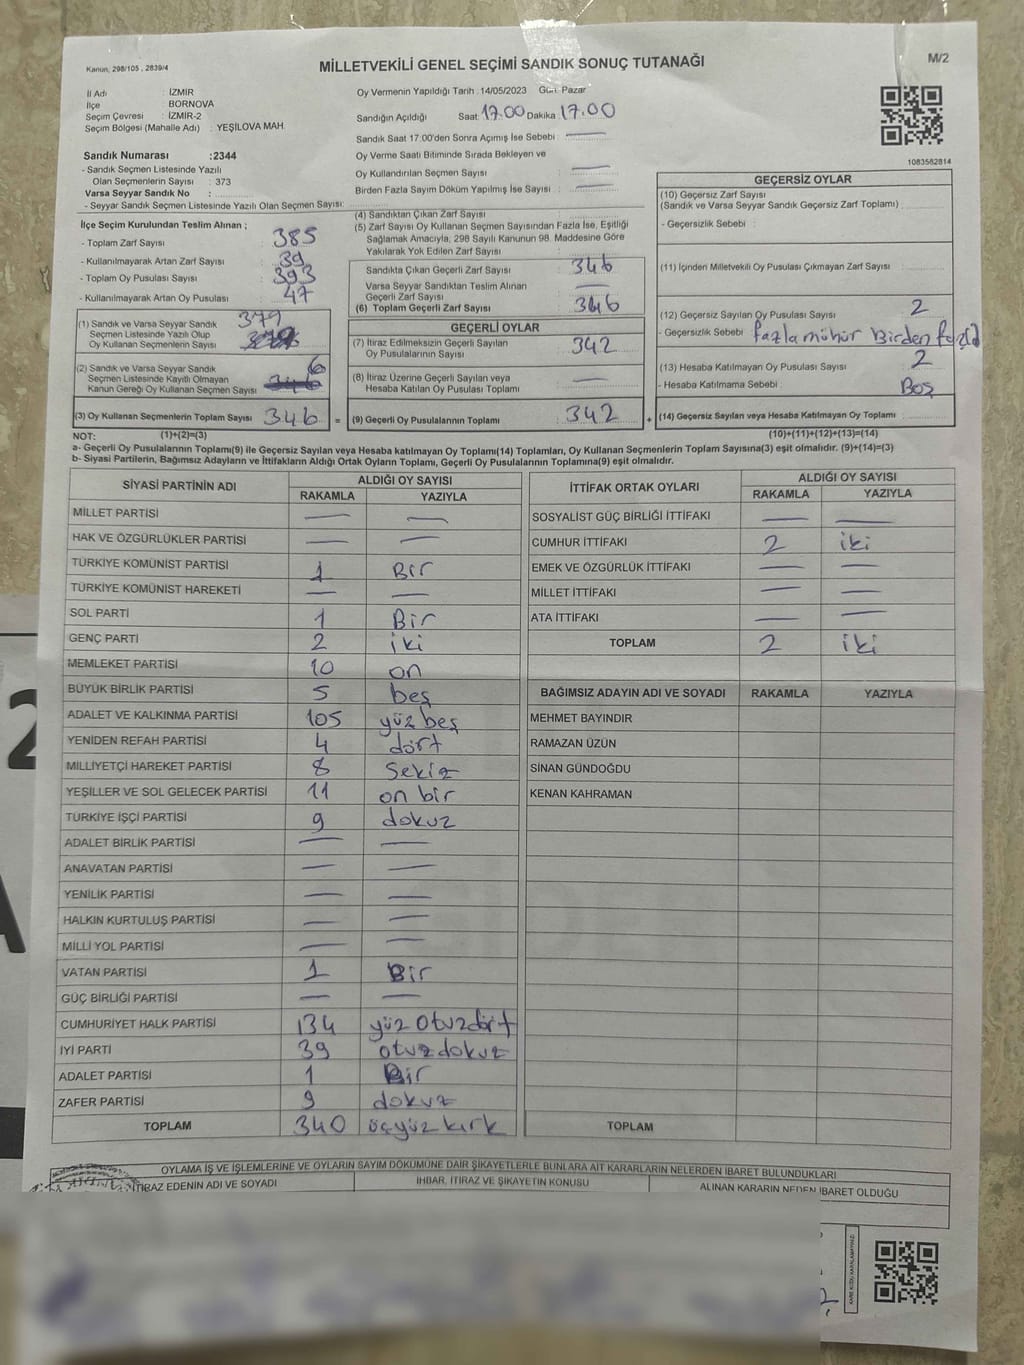 Kanun, 298/105 , 2839/4
MİLLETVEKİLİ GENEL SEÇİMİ SANDIK SONUÇ TUTANAĞI
M/2
İl Adı : İZMİR
İlçe : BORNOVA
Seçim Çevresi : İZMİR-2
Seçim Bölgesi (Mahalle Adı) : YEŞİLOVA MAH.
Sandık Numarası :2344
- Sandık Seçmen Listesinde Yazılı
Olan Seçmenlerin Sayısı : 373
Varsa Seyyar Sandık No :
- Seyyar Sandık Seçmen Listesinde Yazılı Olan Seçmen Sayısı:
Oy Vermenin Yapıldığı Tarih : 14/05/2023 Gün: Pazar
Sandığın Açıldığı Saat 17.00 Dakika 17.00
Sandık Saat 17:00'den Sonra Açımış İse Sebebi : —
Oy Verme Saati Bitiminde Sırada Bekleyen ve
Oy Kullandırılan Seçmen Sayısı : —
Birden Fazla Sayım Döküm Yapılmış İse Sayısı : —
1083562814
İlçe Seçim Kurulundan Teslim Alınan ;
- Toplam Zarf Sayısı : 385
- Kullanılmayarak Artan Zarf Sayısı : 39
- Toplam Oy Pusulası Sayısı : 393
- Kullanılmayarak Artan Oy Pusulası : 47
(1) Sandık ve Varsa Seyyar Sandık
Seçmen Listesinde Yazılı Olup
Oy Kullanan Seçmenlerin Sayısı
(2) Sandık ve Varsa Seyyar Sandık
Seçmen Listesinde Kayıtlı Olmayan
Kanun Gereği Oy Kullanan Seçmen Sayısı 6
(3) Oy Kullanan Seçmenlerin Toplam Sayısı 346 =
(4) Sandıktan Çıkan Zarf Sayısı :
(5) Zarf Sayısı Oy Kullanan Seçmen Sayısından Fazla İse, Eşitliği
Sağlamak Amacıyla, 298 Sayılı Kanunun 98. Maddesine Göre
Yakılarak Yok Edilen Zarf Sayısı :
Sandıkta Çıkan Geçerli Zarf Sayısı : 346
Varsa Seyyar Sandıktan Teslim Alınan
Geçerli Zarf Sayısı : —
(6) Toplam Geçerli Zarf Sayısı : 346
GEÇERLİ OYLAR
(7) İtiraz Edilmeksizin Geçerli Sayılan
Oy Pusulalarının Sayısı : 342
(8) İtiraz Üzerine Geçerli Sayılan veya
Hesaba Katılan Oy Pusulası Toplamı : —
(9) Geçerli Oy Pusulalarının Toplamı : 342 +
GEÇERSİZ OYLAR
(10) Geçersiz Zarf Sayısı
(Sandık ve Varsa Seyyar Sandık Geçersiz Zarf Toplamı) :
- Geçersizlik Sebebi :
(11) İçinden Milletvekili Oy Pusulası Çıkmayan Zarf Sayısı :
(12) Geçersiz Sayılan Oy Pusulası Sayısı : 2
- Geçersizlik Sebebi : fazla mühür Birden
(13) Hesaba Katılmayan Oy Pusulası Sayısı : 2
- Hesaba Katılmama Sebebi : Boş
(14) Geçersiz Sayılan veya Hesaba Katılmayan Oy Toplamı :
NOT: (1)+(2)=(3)
(10)+(11)+(12)+(13)=(14)
a- Geçerli Oy Pusulalarının Toplamı(9) ile Geçersiz Sayılan veya Hesaba katılmayan Oy Toplamı(14) Toplamları, Oy Kullanan Seçmenlerin Toplam Sayısına(3) eşit olmalıdır. (9)+(14)=(3)
b- Siyasi Partilerin, Bağımsız Adayların ve İttifakların Aldığı Ortak Oyların Toplamı, Geçerli Oy Pusulalarının Toplamına(9) eşit olmalıdır.
SİYASİ PARTİNİN ADI ALDIĞI OY SAYISI
RAKAMLA YAZIYLA
MİLLET PARTİSİ — —
HAK VE ÖZGÜRLÜKLER PARTİSİ — —
TÜRKİYE KOMÜNİST PARTİSİ 1 Bir
TÜRKİYE KOMÜNİST HAREKETİ — —
SOL PARTİ 1 Bir
GENÇ PARTİ 2 iki
MEMLEKET PARTİSİ 10 on
BÜYÜK BİRLİK PARTİSİ 5 beş
ADALET VE KALKINMA PARTİSİ 105 yüz beş
YENİDEN REFAH PARTİSİ 4 dört
MİLLİYETÇİ HAREKET PARTİSİ 8 Sekiz
YEŞİLLER VE SOL GELECEK PARTİSİ 11 on bir
TÜRKİYE İŞÇİ PARTİSİ 9 dokuz
ADALET BİRLİK PARTİSİ — —
ANAVATAN PARTİSİ — —
YENİLİK PARTİSİ — —
HALKIN KURTULUŞ PARTİSİ — —
MİLLİ YOL PARTİSİ — —
VATAN PARTİSİ 1 Bir
GÜÇ BİRLİĞİ PARTİSİ — —
CUMHURİYET HALK PARTİSİ 134 yüz otuzdört
İYİ PARTİ 39 otuzdokuz
ADALET PARTİSİ 1 Bir
ZAFER PARTİSİ 9 dokuz
TOPLAM 340 üçyüz kırk
İTTİFAK ORTAK OYLARI ALDIĞI OY SAYISI
RAKAMLA YAZIYLA
SOSYALİST GÜÇ BİRLİĞİ İTTİFAKI — —
CUMHUR İTTİFAKI 2 iki
EMEK VE ÖZGÜRLÜK İTTİFAKI — —
MİLLET İTTİFAKI — —
ATA İTTİFAKI — —
TOPLAM 2 iki
BAĞIMSIZ ADAYIN ADI VE SOYADI RAKAMLA YAZIYLA
MEHMET BAYINDIR
RAMAZAN ÜZÜN
SİNAN GÜNDOĞDU
KENAN KAHRAMAN
TOPLAM
OYLAMA İŞ VE İŞLEMLERİNE VE OYLARIN SAYIM DÖKÜMÜNE DAİR ŞİKAYETLERLE BUNLARA AİT KARARLARIN NELERDEN İBARET BULUNDUKLARI
İTİRAZ EDENİN ADI VE SOYADI İHBAR, İTİRAZ VE ŞİKAYETİN KONUSU ALINAN KARARIN NEDEN İBARET OLDUĞU